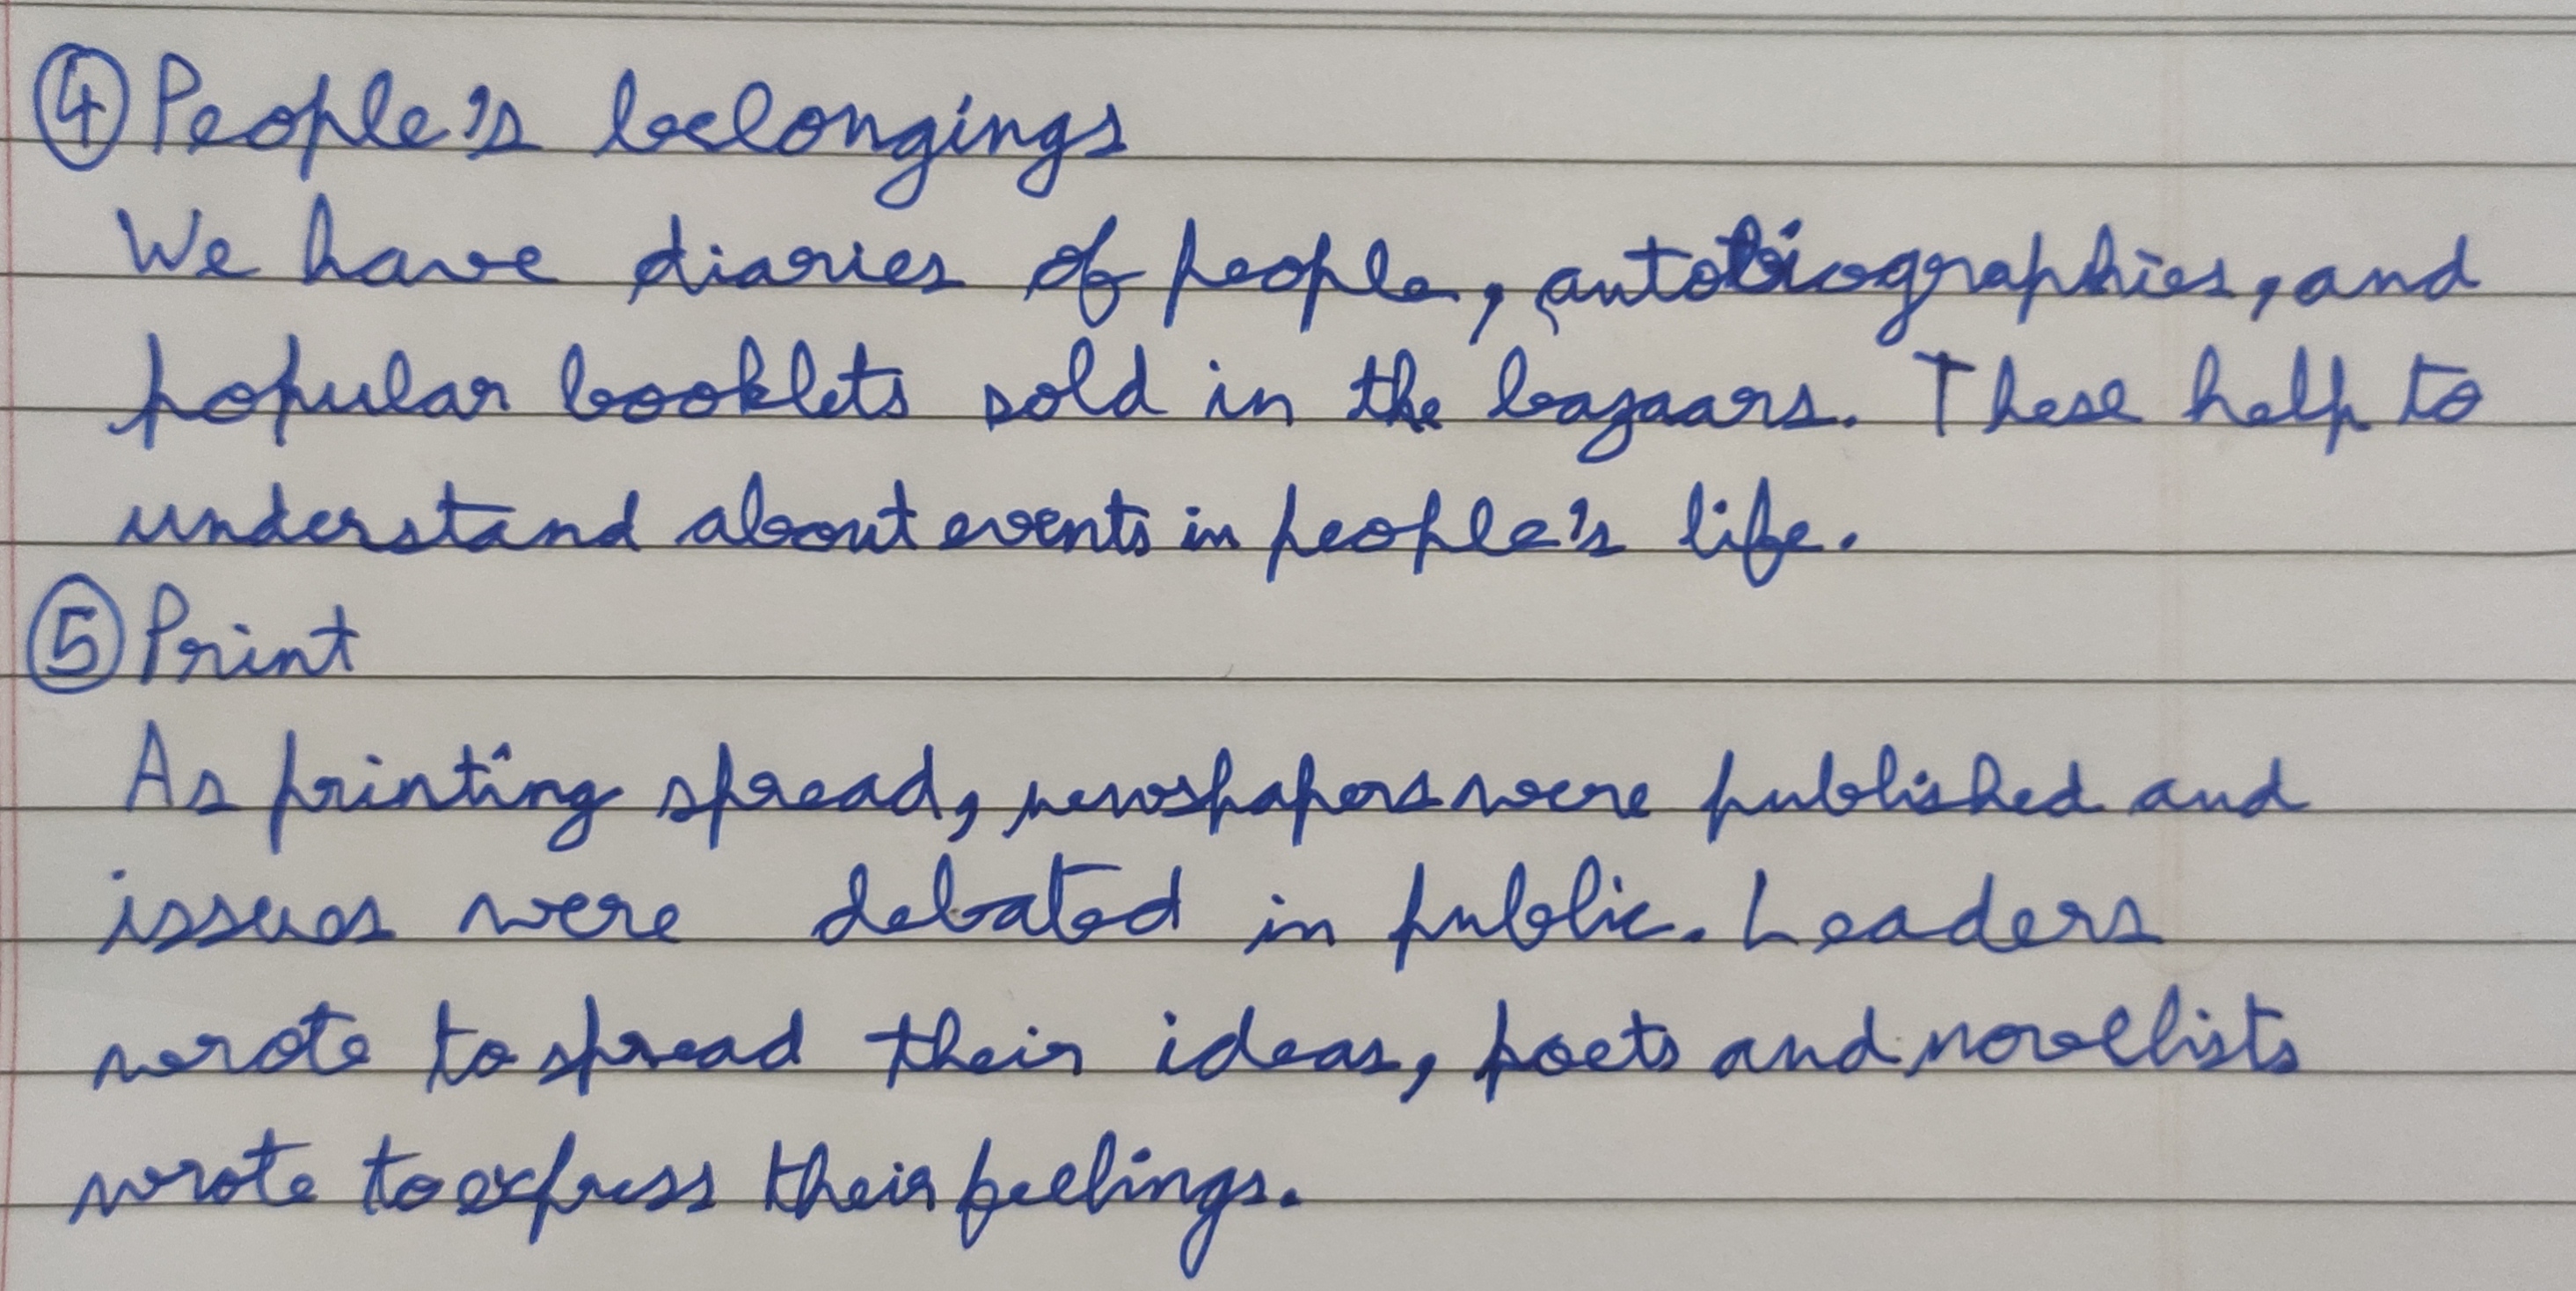 ④ People's belongings
We have diaries of people, autobiographies, and
popular booklets sold in the bazaars. These help to
understand about events in people's life.
⑤ Print
As printing spread, newspapers were published and
issues were debated in public. Leaders
wrote to spread their ideas, poets and novellists
wrote to express their feelings.